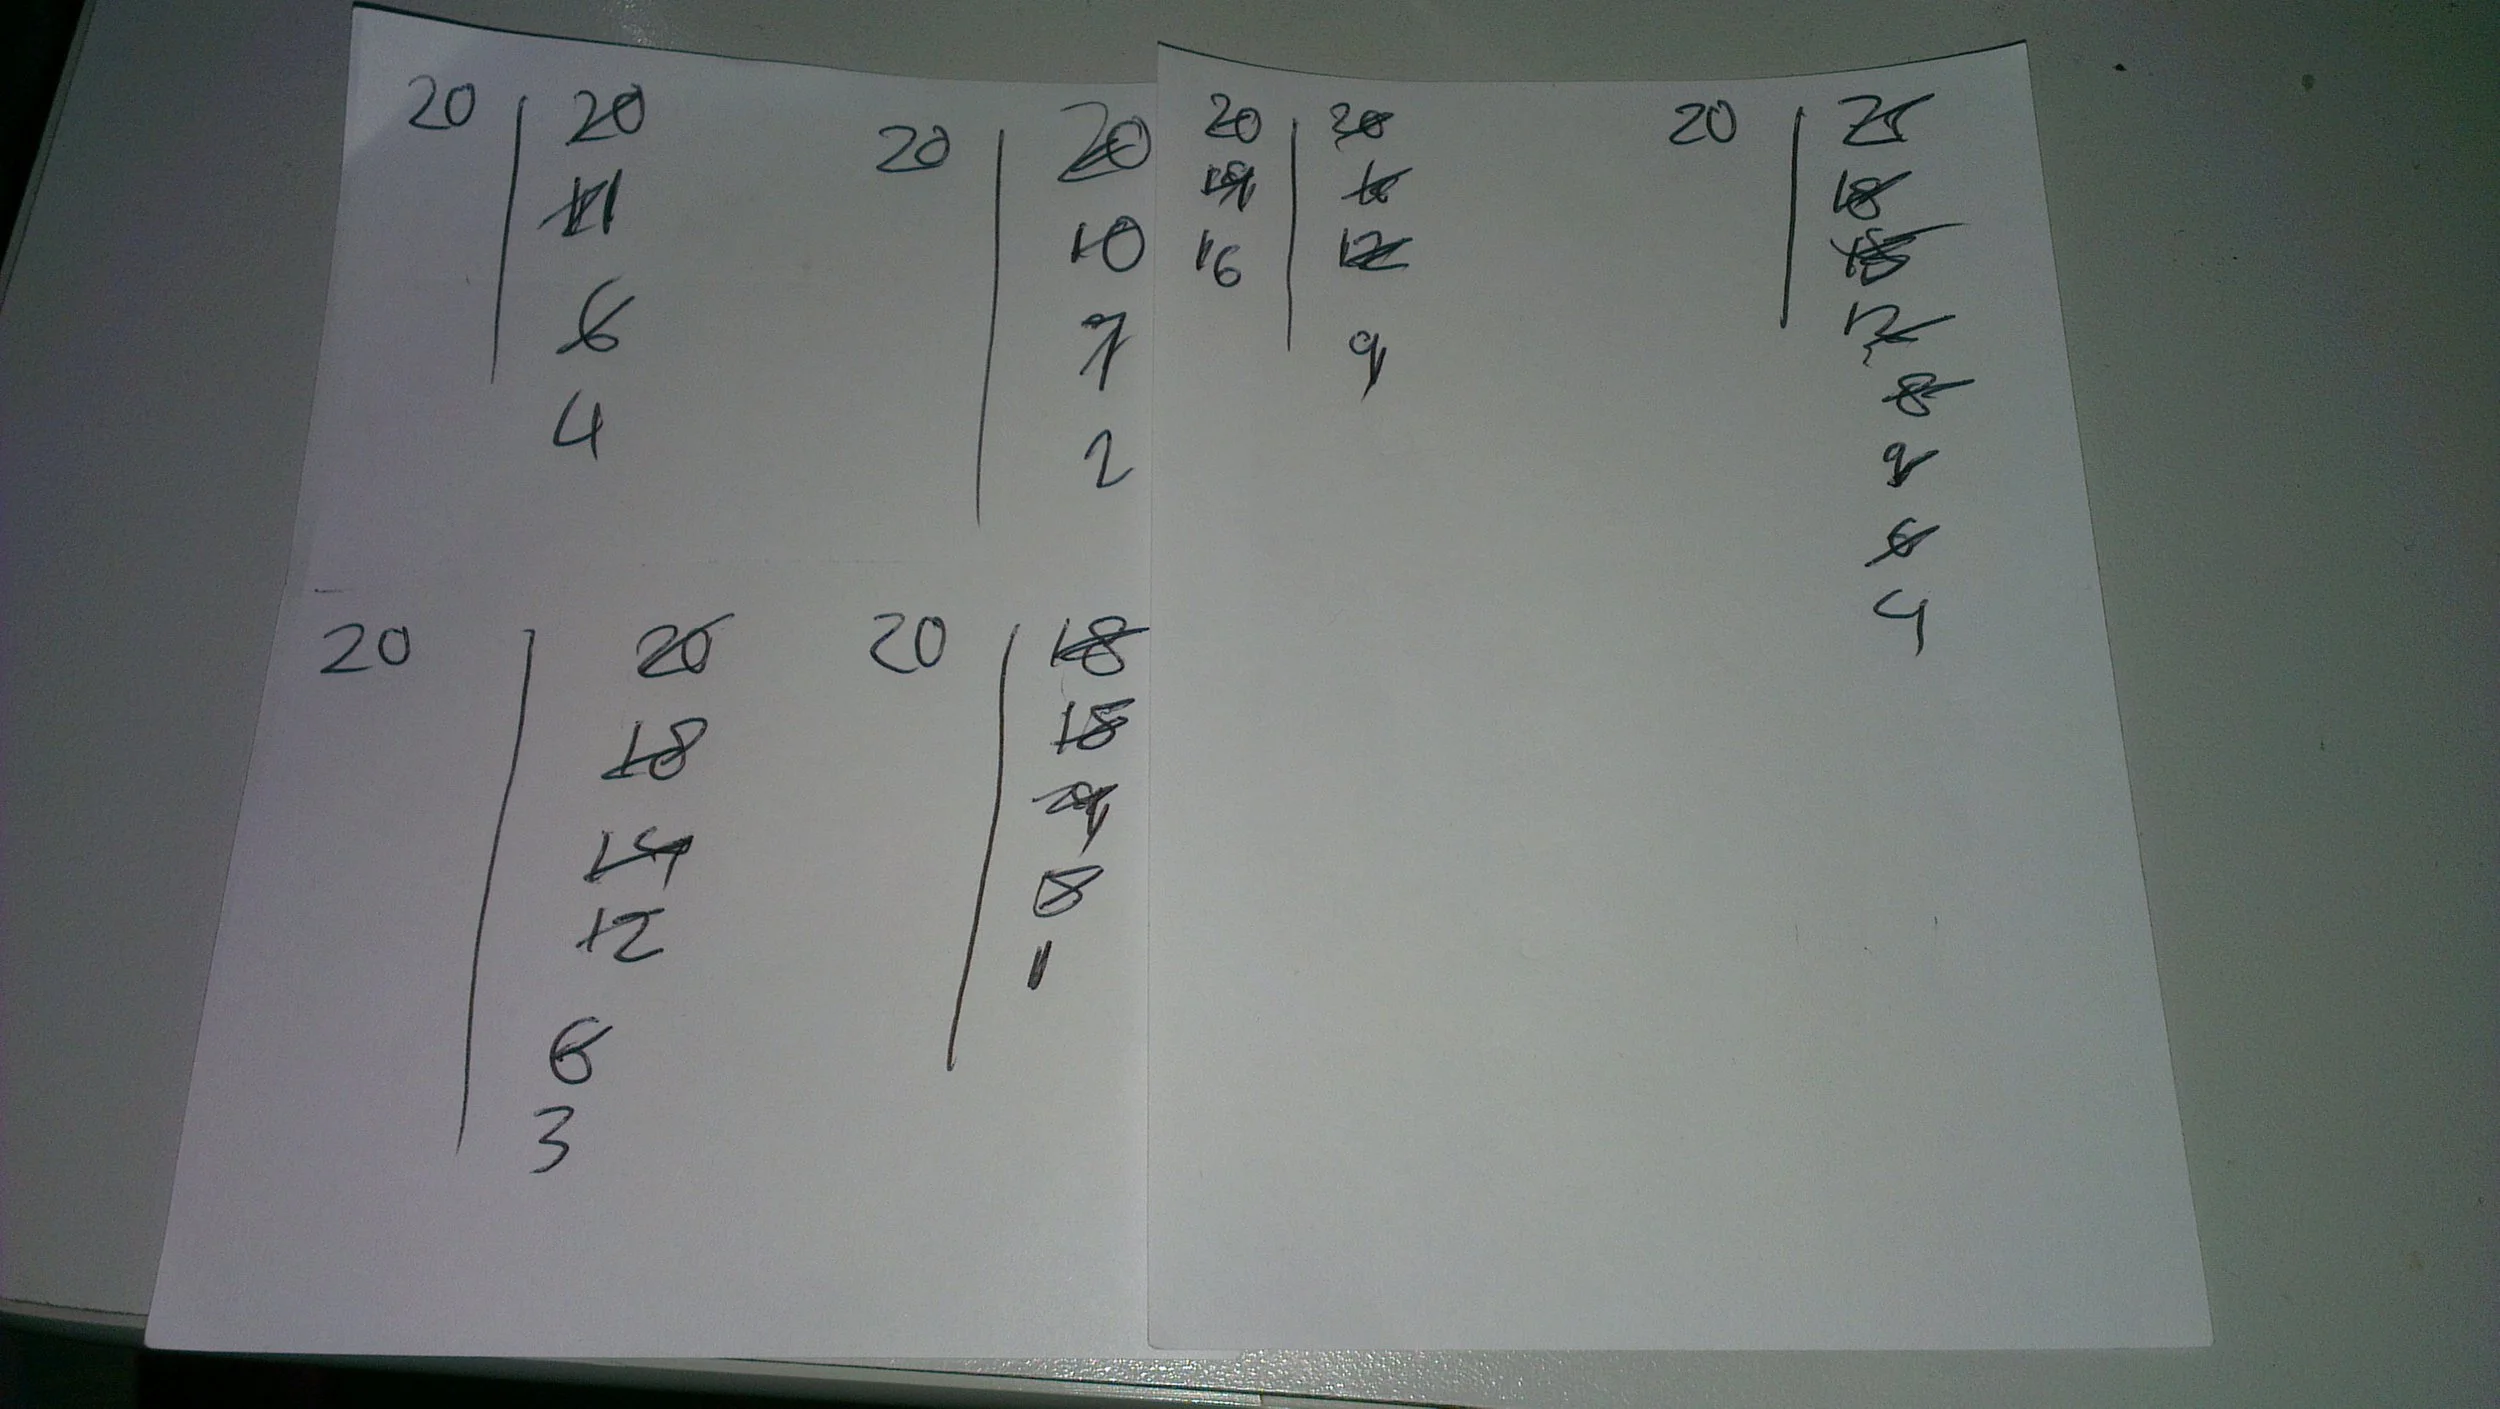 20 20
11
6
4
20 20
10
7
2
20 20
18
14
12
6
3
20 18
15
8
1
20
19
16 12
9
20
18
15
12
8
9
6
4